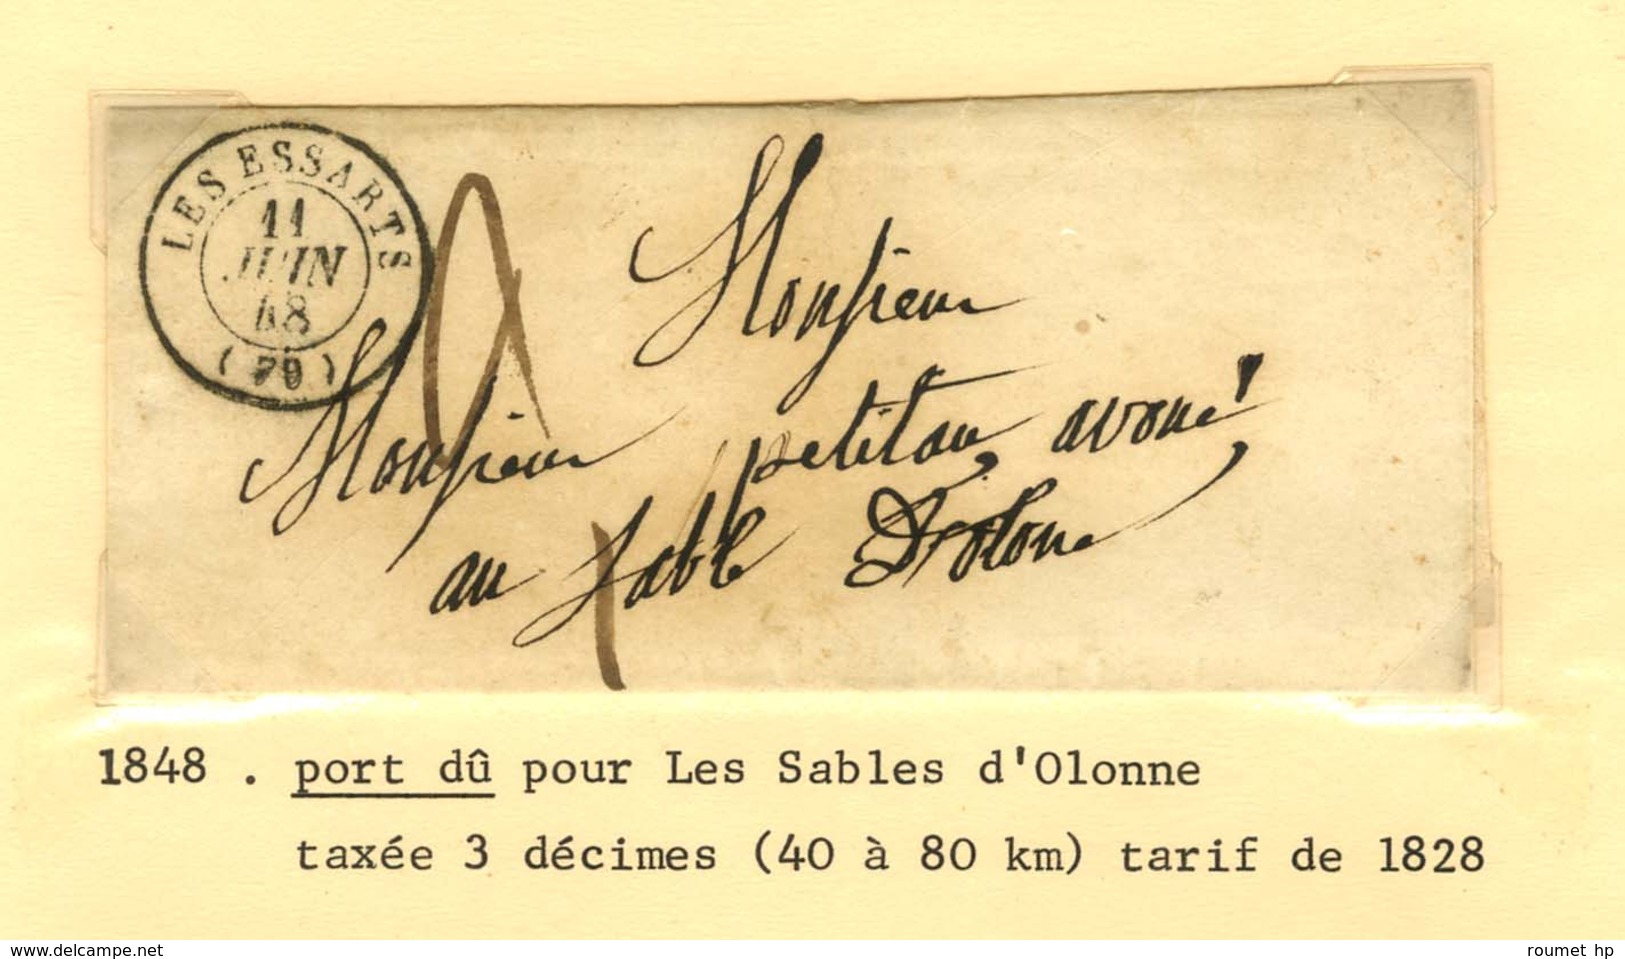 LES ESSARTS
11
JUIN
48
(79)
Monsieur
Monsieur petitau, avoué,
au Sable D'olone
1848 . port dû pour Les Sables d'Olonne
taxée 3 décimes (40 à 80 km) tarif de 1828
www.delcampe.net
roumet hp